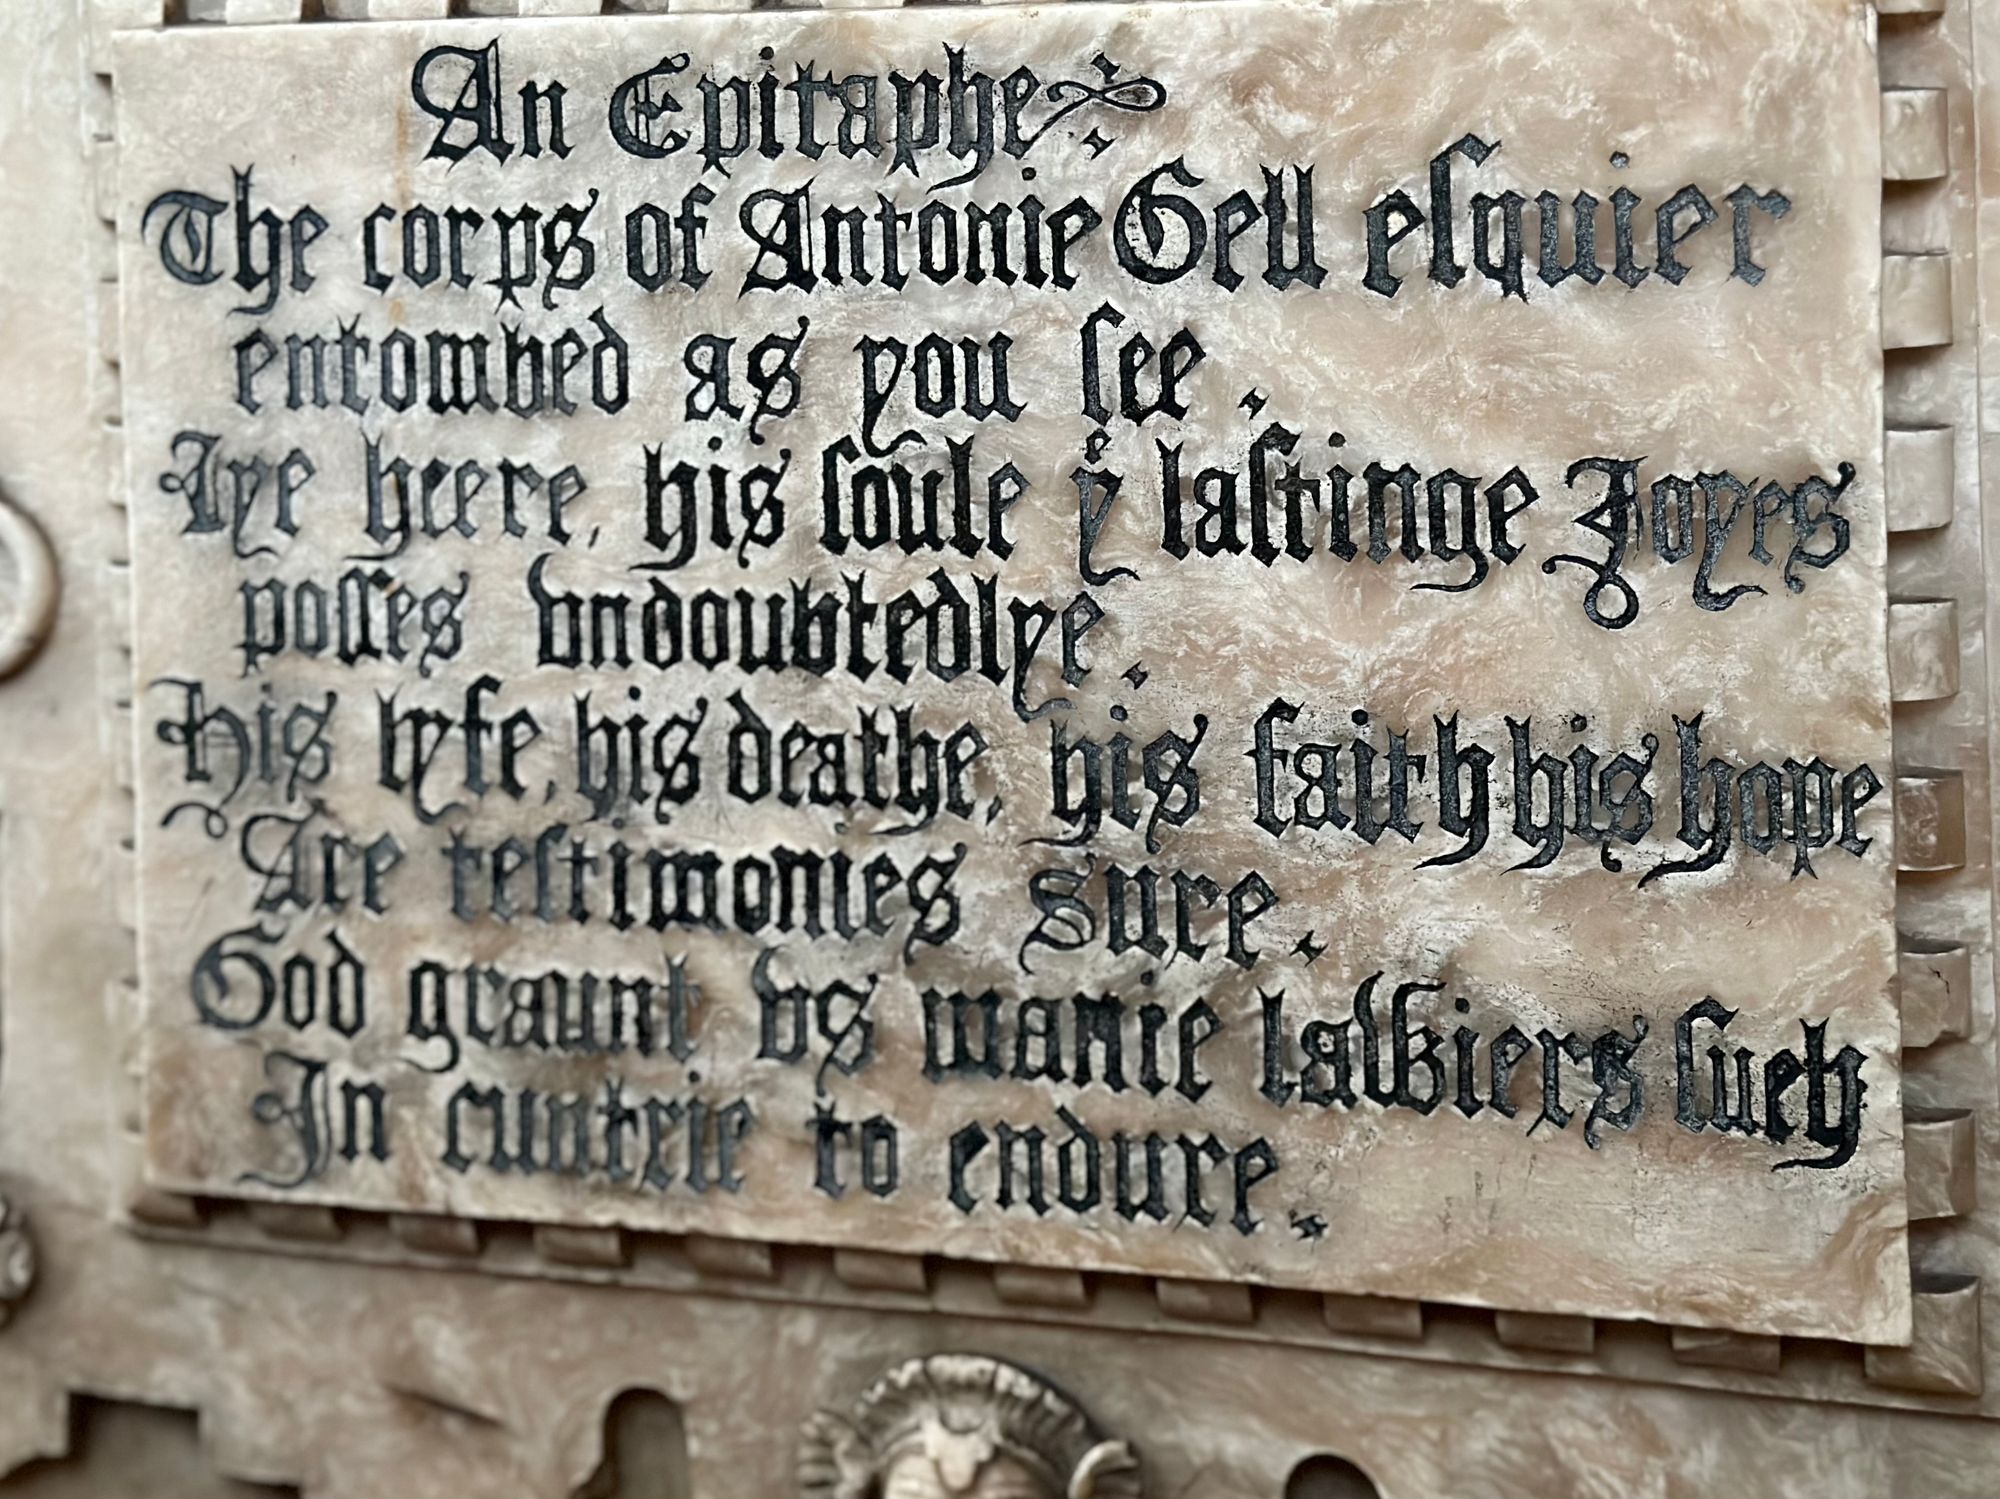 An Epitaphe
The corps of Antonie Gell eſquier
entombed as you ſee.
Lye heere, his ſoule yͤ laſtinge Joyes
poſſes vndoubtedlye.
His lyfe, his deathe, his faith his hope
Are teſtimonies sure.
God graunt vs manie lawiers ſuch
In cuntrie to endure.